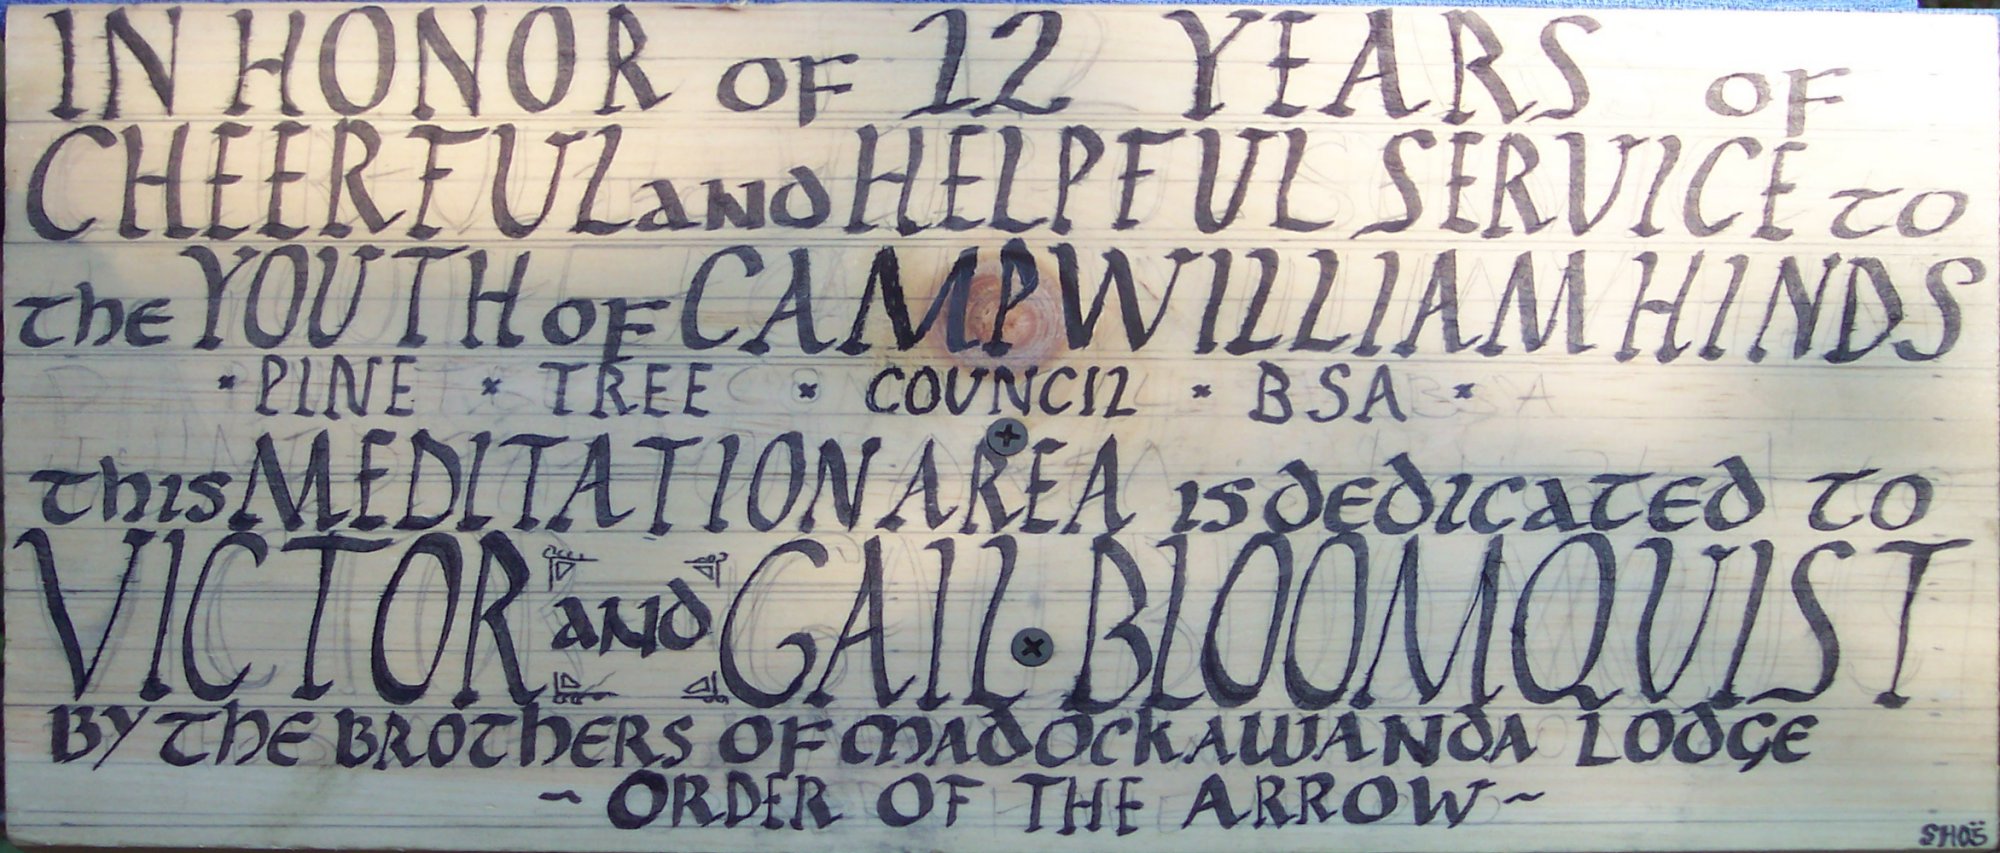 IN HONOR OF 12 YEARS OF
CHEERFUL AND HELPFUL SERVICE TO
the YOUTH OF CAMP WILLIAM HINDS
* PINE * TREE * COUNCIL * BSA *
this MEDITATION AREA IS DEDICATED TO
VICTOR AND GAIL BLOOMQUIST
BY THE BROTHERS OF MADOCKAWANDA LODGE
~ ORDER OF THE ARROW ~